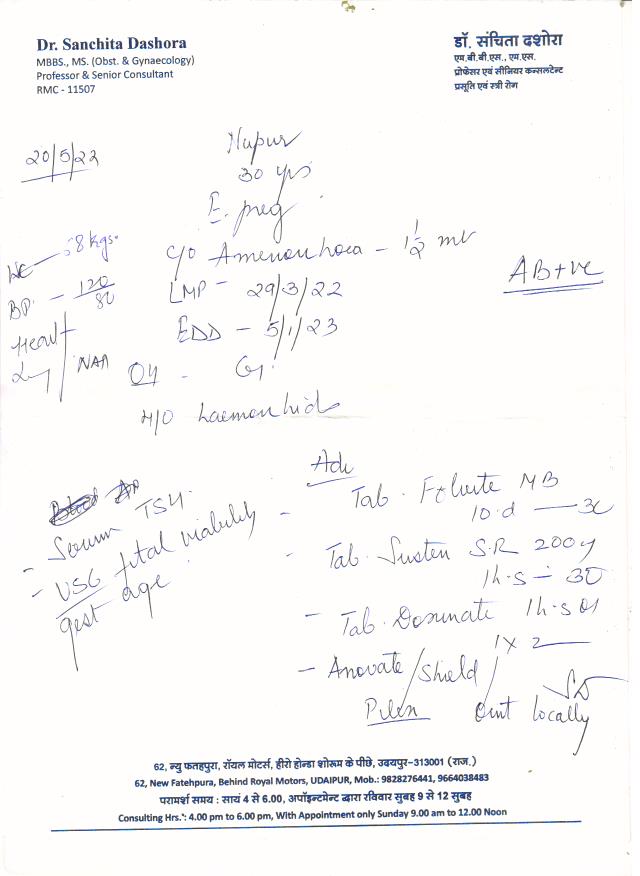 Dr. Sanchita Dashora
MBBS., MS. (Obst. & Gynaecology)
Professor & Senior Consultant
RMC - 11507
डॉ. संचिता दशोरा
एम.बी.बी.एस., एम.एस.
प्रोफेसर एवं सीनियर कन्सलटेन्ट
प्रसूति एवं स्त्री रोग
20/5/22
Nupur
30 yrs
E. preg
58 kgs.
BP. - 120/80
Heart
NAD
c/o Amenorrhoea - 1 1/2 m
LMP - 29/3/22
EDD - 5/1/23
OH - G1
H/O haemorrhoid
AB+ve
- Serum TSH.
- USG fetal viability
gest age
Adv
- Tab. Folvite MB
1 O.d
- Tab. Susten S.R 200
1 h.s - 30
- Tab. Doxinate 1 h.s or
1 x 2
- Anovate/Shield/
Pilex Oint locally
62, न्यु फतहपुरा, रॉयल मोटर्स, हीरो होन्डा शोरूम के पीछे, उदयपुर-313001 (राज.)
62, New Fatehpura, Behind Royal Motors, UDAIPUR, Mob.: 9828276441, 9664038483
परामर्श समय : सायं 4 से 6.00, अपॉइन्टमेन्ट द्वारा रविवार सुबह 9 से 12 सुबह
Consulting Hrs.: 4.00 pm to 6.00 pm, With Appointment only Sunday 9.00 am to 12.00 Noon